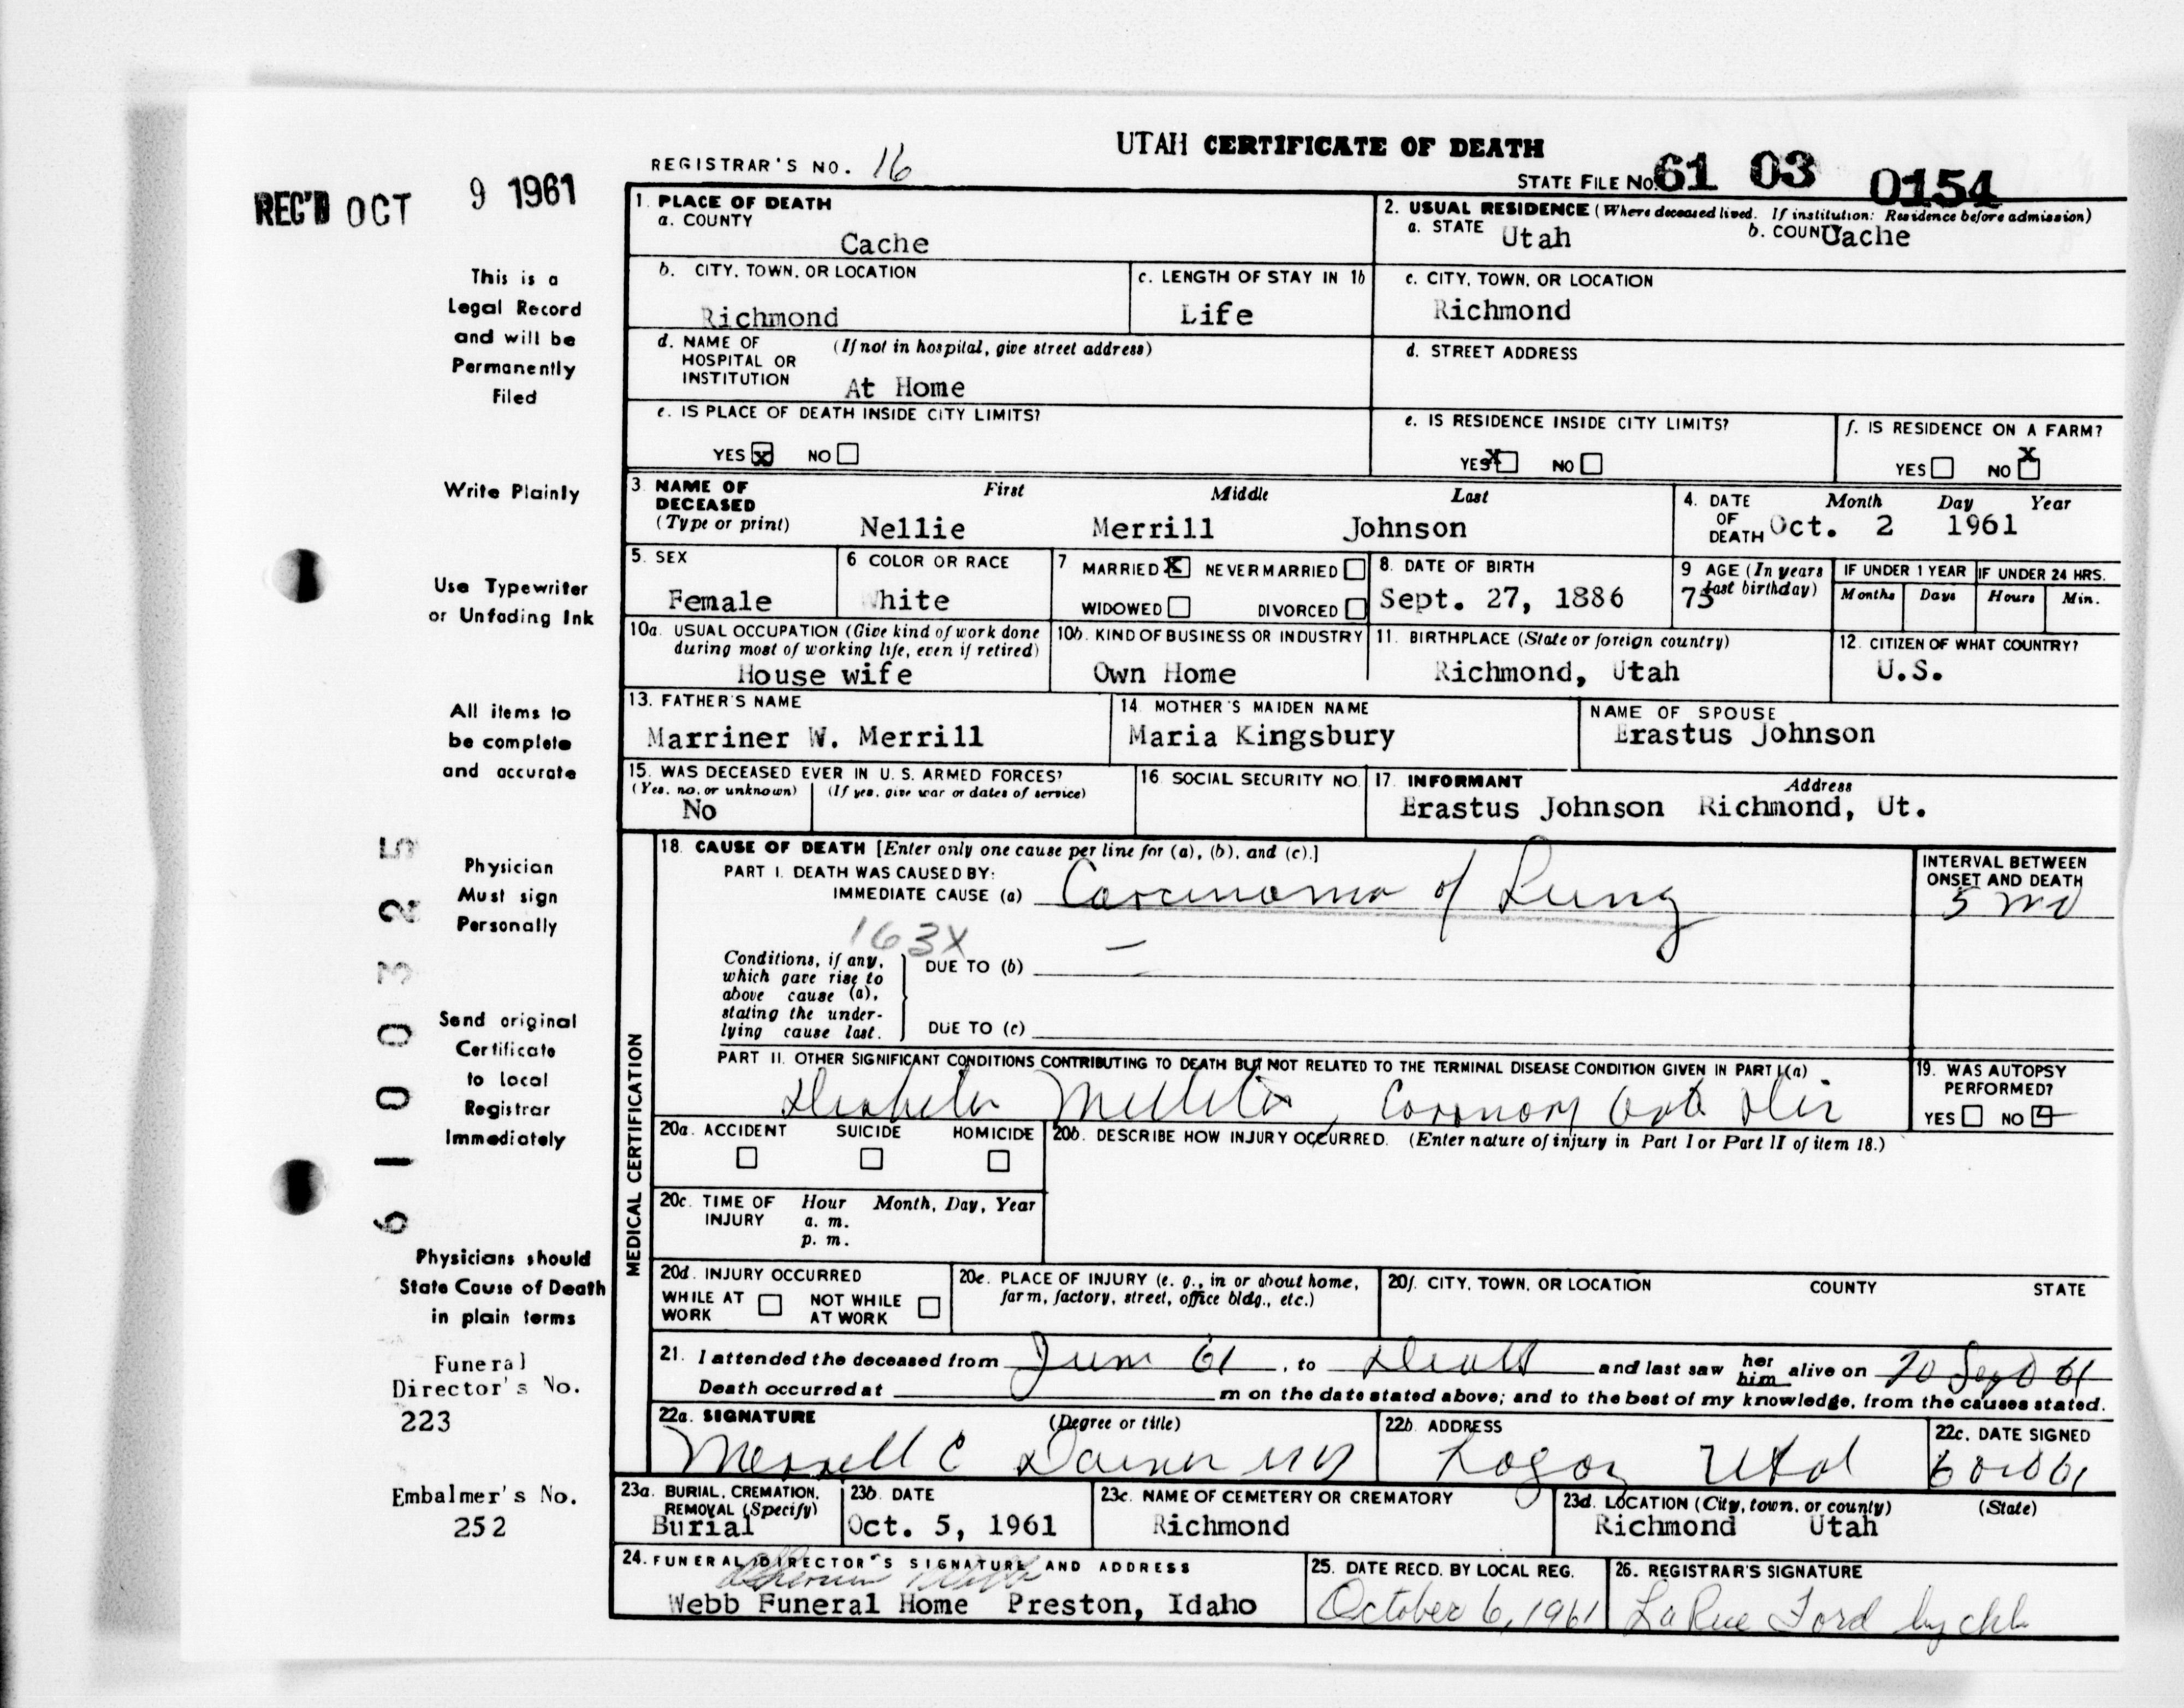 UTAH CERTIFICATE OF DEATH
REGISTRAR'S NO. 16
STATE FILE NO. 61 03 0154
REC'D OCT 9 1961
This is a
Legal Record
and will be
Permanently
Filed
Write Plainly
Use Typewriter
or Unfading Ink
All items to
be complete
and accurate
Physician
Must sign
Personally
Send original
Certificate
to local
Registrar
Immediately
Physicians should
State Cause of Death
in plain terms
Funeral
Director's No.
223
Embalmer's No.
252
61 0 0325
1. PLACE OF DEATH
a. COUNTY
Cache
2. USUAL RESIDENCE (Where deceased lived. If institution: Residence before admission)
a. STATE Utah b. COUN Cache
b. CITY, TOWN, OR LOCATION
Richmond
c. LENGTH OF STAY IN 1b
Life
c. CITY, TOWN, OR LOCATION
Richmond
d. NAME OF HOSPITAL OR INSTITUTION (If not in hospital, give street address)
At Home
d. STREET ADDRESS
e. IS PLACE OF DEATH INSIDE CITY LIMITS?
YES X NO
e. IS RESIDENCE INSIDE CITY LIMITS?
YES X NO
f. IS RESIDENCE ON A FARM?
YES NO X
3. NAME OF DECEASED (Type or print)
First Middle Last
Nellie Merrill Johnson
4. DATE OF DEATH Month Day Year
Oct. 2 1961
5. SEX
Female
6 COLOR OR RACE
White
7 MARRIED X NEVER MARRIED
WIDOWED DIVORCED
8. DATE OF BIRTH
Sept. 27, 1886
9 AGE (In years last birthday)
75
IF UNDER 1 YEAR
Months Days
IF UNDER 24 HRS.
Hours Min.
10a. USUAL OCCUPATION (Give kind of work done during most of working life, even if retired)
House wife
10b. KIND OF BUSINESS OR INDUSTRY
Own Home
11. BIRTHPLACE (State or foreign country)
Richmond, Utah
12. CITIZEN OF WHAT COUNTRY?
U.S.
13. FATHER'S NAME
Marriner W. Merrill
14. MOTHER'S MAIDEN NAME
Maria Kingsbury
NAME OF SPOUSE
Erastus Johnson
15. WAS DECEASED EVER IN U. S. ARMED FORCES?
(Yes, no, or unknown) (If yes, give war or dates of service)
No
16. SOCIAL SECURITY NO.
17. INFORMANT Address
Erastus Johnson Richmond, Ut.
MEDICAL CERTIFICATION
18. CAUSE OF DEATH [Enter only one cause per line for (a), (b), and (c).]
PART I. DEATH WAS CAUSED BY:
IMMEDIATE CAUSE (a) Carcinoma of Lung
INTERVAL BETWEEN ONSET AND DEATH
5 mo
163X
Conditions, if any, which gave rise to above cause (a), stating the underlying cause last.
DUE TO (b) —
DUE TO (c)
PART II. OTHER SIGNIFICANT CONDITIONS CONTRIBUTING TO DEATH BUT NOT RELATED TO THE TERMINAL DISEASE CONDITION GIVEN IN PART I(a)
Diabetes Mellitus, Coronary
19. WAS AUTOPSY PERFORMED?
YES NO
20a. ACCIDENT SUICIDE HOMICIDE
20b. DESCRIBE HOW INJURY OCCURRED. (Enter nature of injury in Part I or Part II of item 18.)
20c. TIME OF INJURY Hour Month, Day, Year
a. m.
p. m.
20d. INJURY OCCURRED
WHILE AT WORK NOT WHILE AT WORK
20e. PLACE OF INJURY (e. g., in or about home, farm, factory, street, office bldg., etc.)
20f. CITY, TOWN, OR LOCATION COUNTY STATE
21. I attended the deceased from June 61, to Death and last saw her him alive on Sept 61
Death occurred at m on the date stated above; and to the best of my knowledge, from the causes stated.
22a. SIGNATURE (Degree or title)
Merrill C Daines MD
22b. ADDRESS
Logan Utah
22c. DATE SIGNED
6 Oct 61
23a. BURIAL, CREMATION, REMOVAL (Specify)
Burial
23b. DATE
Oct. 5, 1961
23c. NAME OF CEMETERY OR CREMATORY
Richmond
23d. LOCATION (City, town, or county) (State)
Richmond Utah
24. FUNERAL DIRECTOR'S SIGNATURE AND ADDRESS
Webb Funeral Home Preston, Idaho
25. DATE RECD. BY LOCAL REG.
October 6, 1961
26. REGISTRAR'S SIGNATURE
LaRue Ford by chb